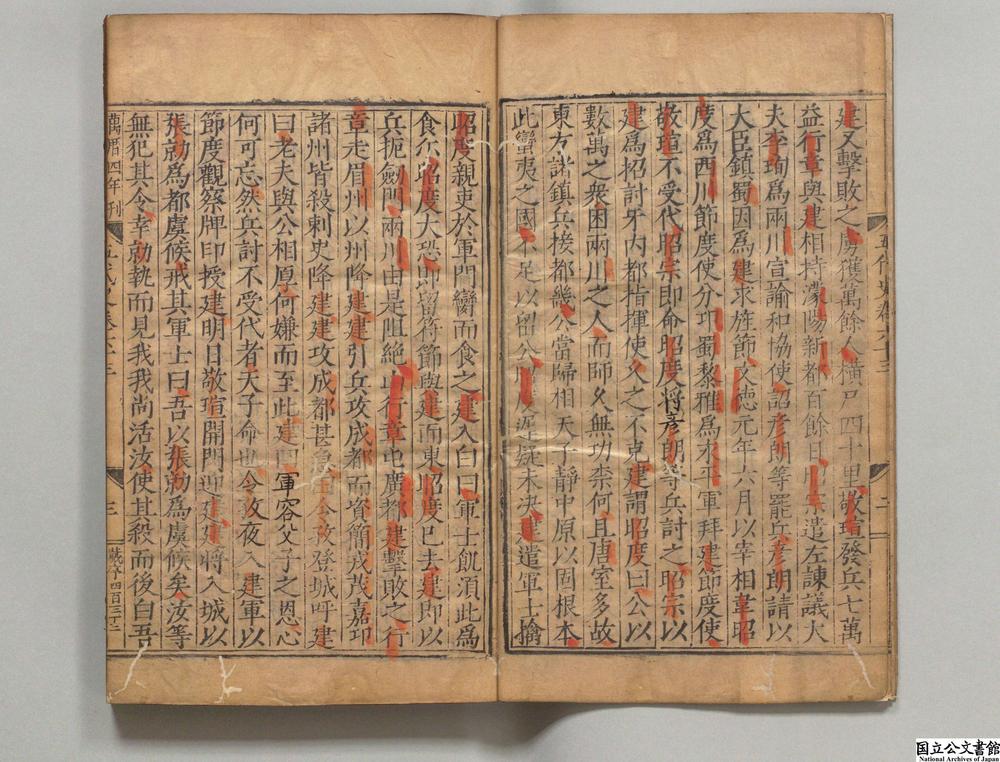 建又擊敗之虜獲萬餘人橫尸四十里敬瑄發兵七萬
益行章與建相持濛陽新都百餘日昭宗遣左諫議大
夫李珣爲兩川宣諭和協使詔彥朗等罷兵彥朗請以
大臣鎭蜀因爲建求旌節文德元年六月以宰相韋昭
度爲西川節度使分邛蜀黎雅爲永平軍拜建節度使
敬瑄不受代昭宗即命昭度將彥朗等兵討之昭宗以
建爲招討牙內都指揮使久之不克建謂昭度曰公以
數萬之衆困兩川之人而師久無功柰何且唐室多故
東方諸鎭兵接都畿公當歸相天子靜中原以固根本
此蠻夷之國不足以留公昭度遲疑未決建遣軍士擒
五代史卷六十三
二
昭度親吏於軍門臠而食之建入白曰軍士飢須此爲
食尔昭度大恐即留符節與建而東昭度已去建即以
兵扼劒門兩川由是阻絶山行章屯廣都建擊敗之行
章走眉州以州降建建引兵攻成都而資簡戎茂嘉邛
諸州皆殺刺史降建建攻成都甚急田令孜登城呼建
曰老夫與公相厚何嫌而至此建曰軍容父子之恩心
何可忘然兵討不受代者天子命也令孜夜入建軍以
節度觀察牌印授建明日敬瑄開門迎建建將入城以
張勍爲都虞候戒其軍士曰吾以張勍爲虞候矣汝等
無犯其令幸勍執而見我我尚活汝使其殺而後白吾
萬曆四年刊
五代史卷六十三
三
國立公文書館
National Archives of Japan